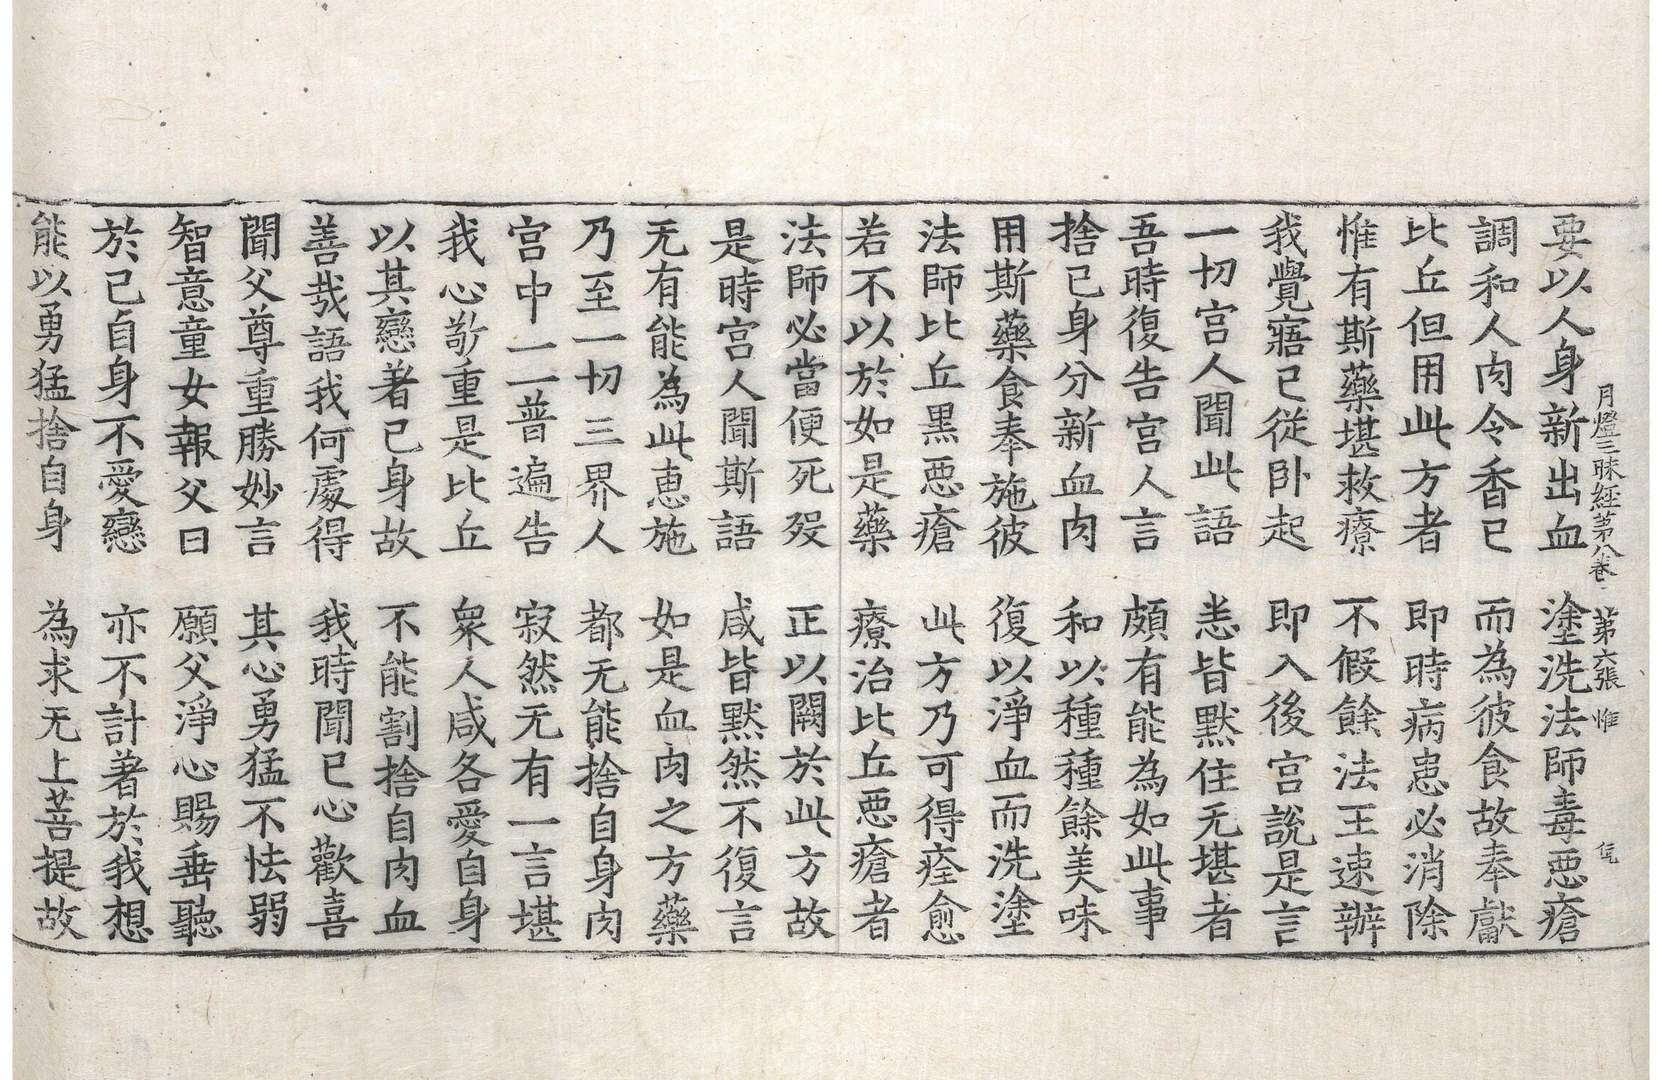 月燈三昧經第八卷 第六張 惟
要以人身新出血 塗洗法師毒惡瘡
調和人肉令香已 而為彼食故奉獻
比丘但用此方者 即時病患必消除
惟有斯藥堪救療 不假餘法王速辦
我覺寤已從卧起 即入後宮說是言
一切宮人聞此語 恙皆默住无堪者
吾時復告宮人言 頗有能為如此事
捨已身分新血肉 和以種種餘美味
用斯藥食奉施彼 復以淨血而洗塗
法師比丘黑惡瘡 此方乃可得痊愈
若不以於如是藥 療治比丘惡瘡者
法師必當便死歿 正以闕於此方故
是時宮人聞斯語 咸皆默然不復言
无有能為此惠施 如是血肉之方藥
乃至一切三界人 都无能捨自身肉
宮中一一普遍告 寂然无有一言堪
我心敬重是比丘 衆人咸各愛自身
以其戀著己身故 不能割捨自肉血
善哉語我何處得 我時聞已心歡喜
聞父尊重勝妙言 其心勇猛不怯弱
智意童女報父曰 願父淨心賜垂聽
於己自身不愛戀 亦不計著於我想
能以勇猛捨自身 為求无上菩提故